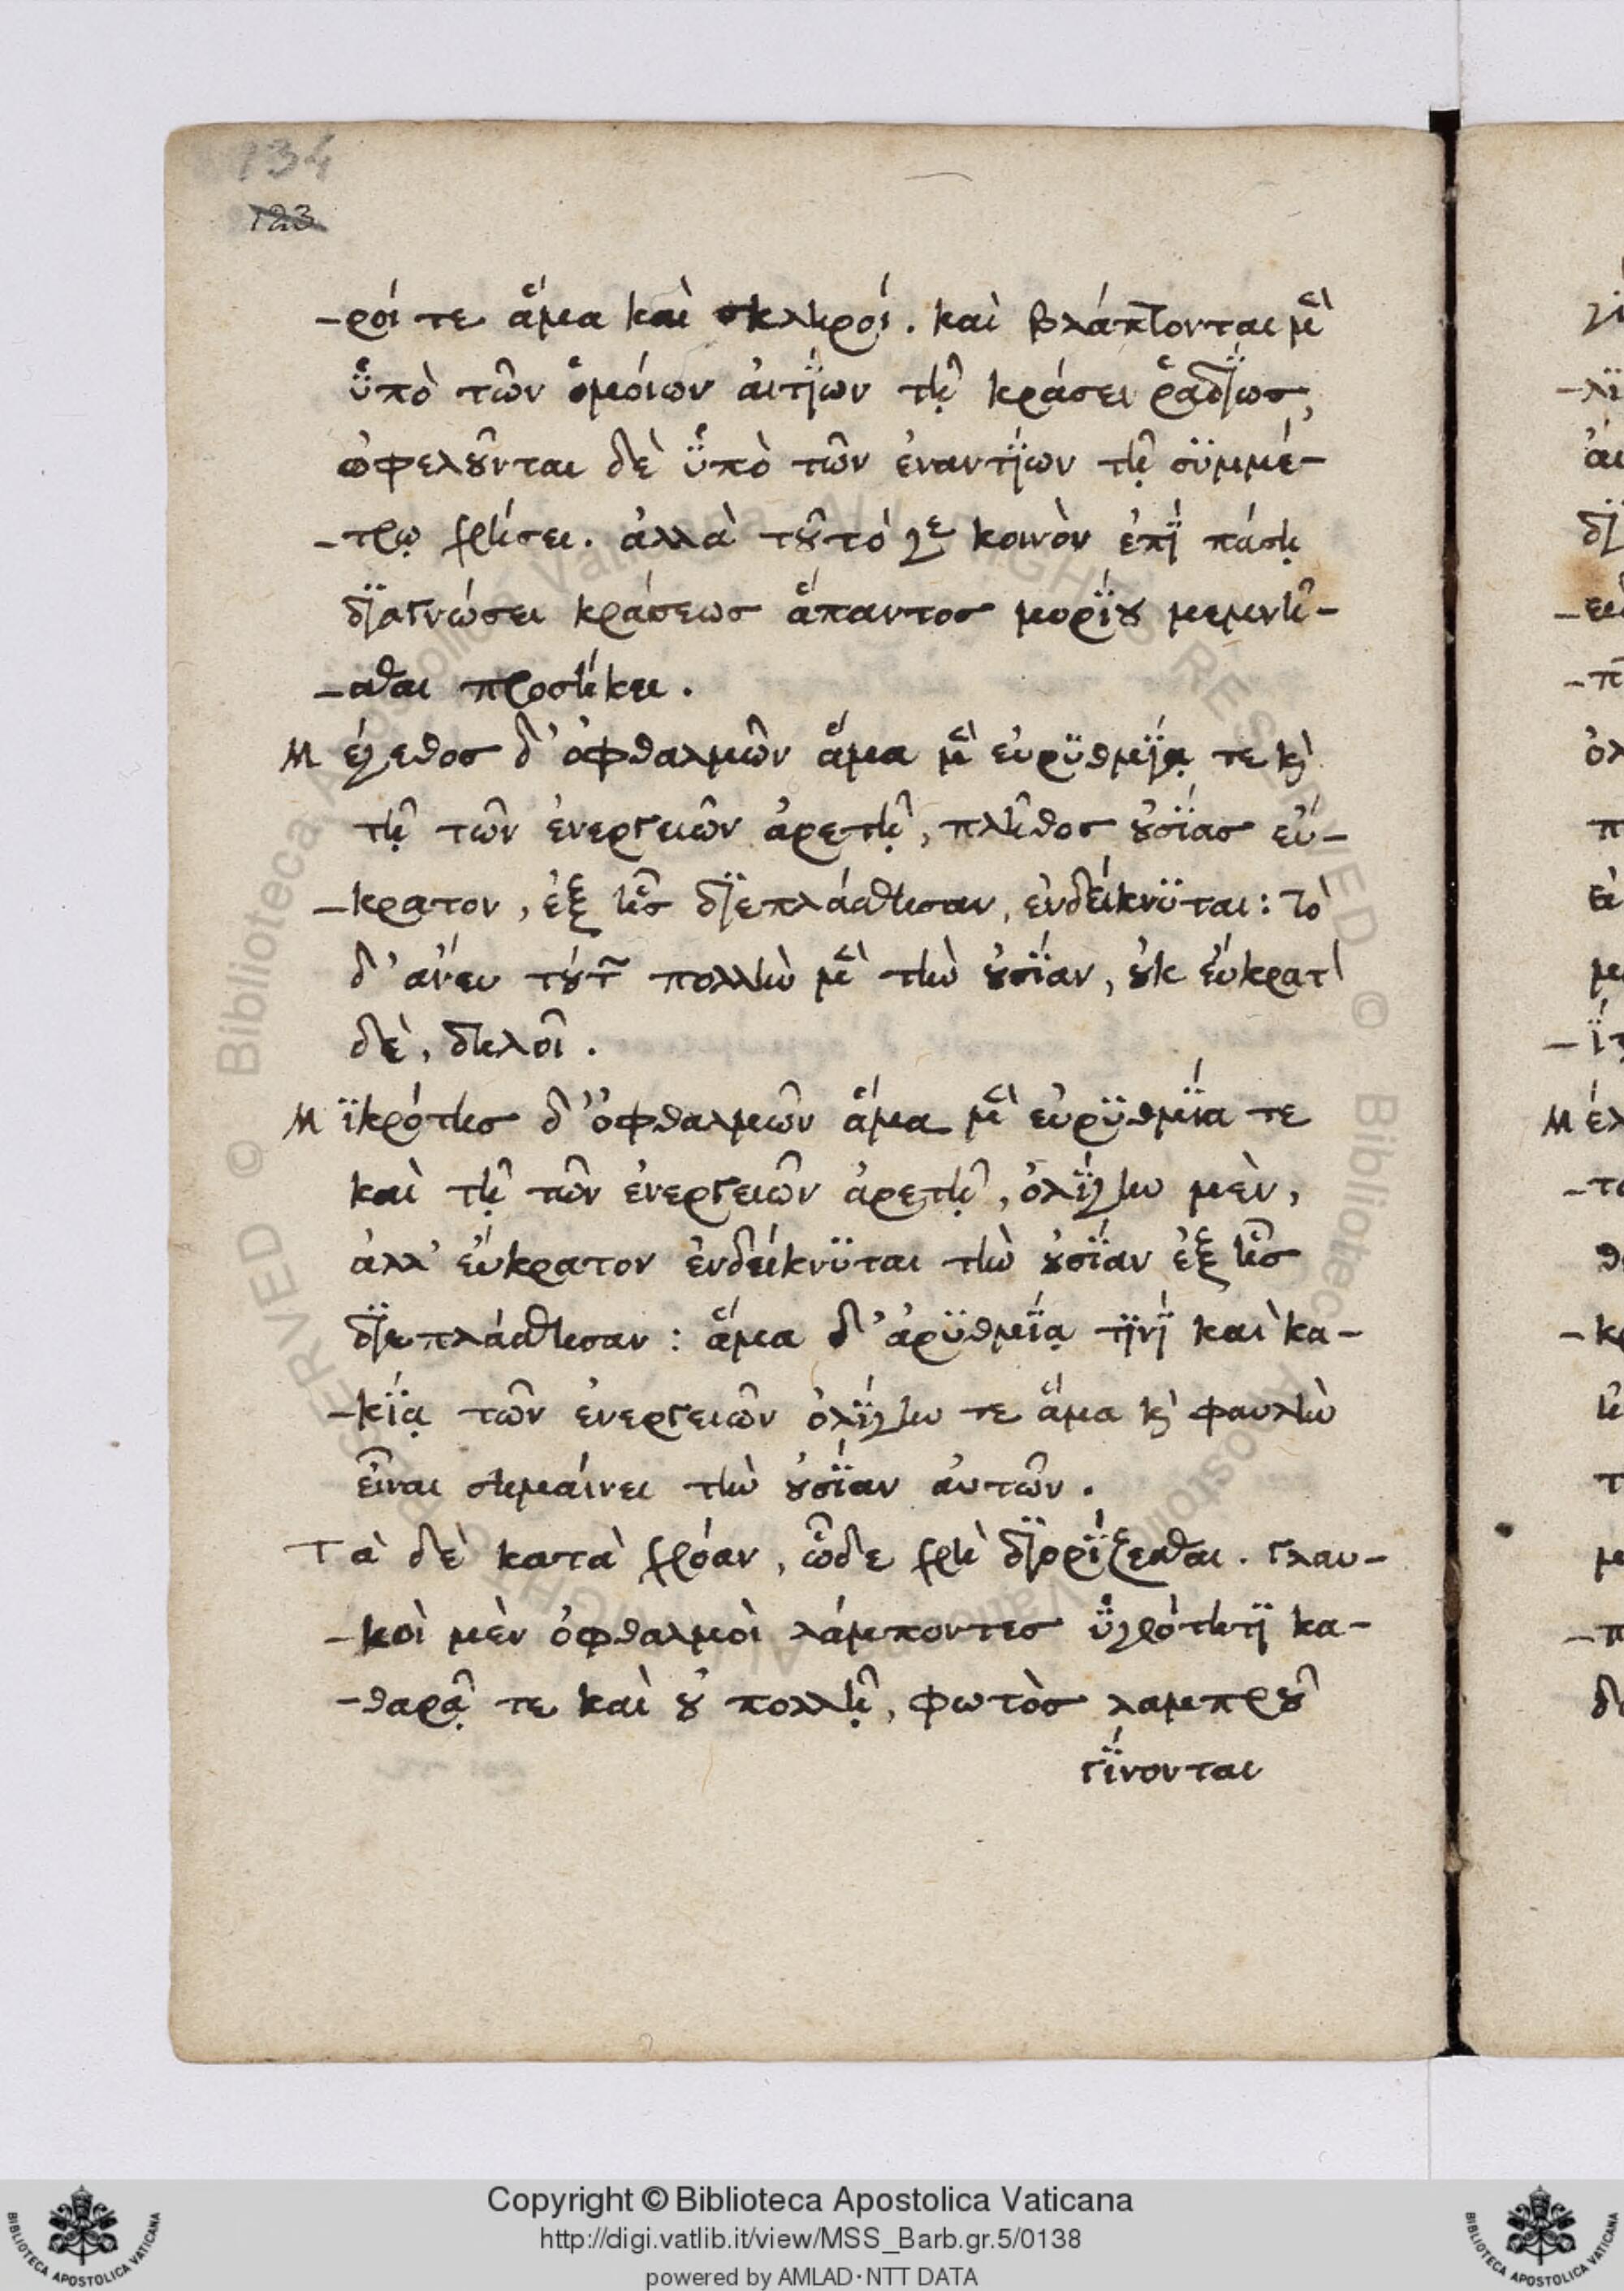 134
123
-ροί τε ἅμα καὶ σκληροί. καὶ βλάπτονται μὲν
ὑπὸ τῶν ὁμοίων αἰτίων τῇ κράσει ῥᾳδίως,
ὠφελοῦνται δὲ ὑπὸ τῶν ἐναντίων τῇ συμμέ-
-τρῳ χρήσει. ἀλλὰ τοῦτό γε κοινὸν ἐπὶ πάσῃ
διαγνώσει κράσεως ἅπαντος μορίου μεμνῆ-
-σθαι προσήκει.
Μέγεθος δ' ὀφθαλμῶν ἅμα μὲν εὐρυθμίᾳ τε καὶ
τῇ τῶν ἐνεργειῶν ἀρετῇ, πλῆθος οὐσίας εὐ-
-κρατον, ἐξ ἧς διεπλάσθησαν, ἐνδείκνυται: τὸ
δ' ἄνευ τούτων πολλὴν μὲν τὴν οὐσίαν, οὐκ εὔκρατον
δὲ, δηλοῖ.
Μικρότης δ' ὀφθαλμῶν ἅμα μὲν εὐρυθμία τε
καὶ τῇ τῶν ἐνεργειῶν ἀρετῇ, ὀλίγην μὲν,
ἀλλ' εὔκρατον ἐνδείκνυται τὴν οὐσίαν ἐξ ἧς
διεπλάσθησαν: ἅμα δ' ἀρυθμίᾳ τινὶ καὶ κα-
-κίᾳ τῶν ἐνεργειῶν ὀλίγην τε ἅμα καὶ φαυλὴν
εἶναι σημαίνει τὴν οὐσίαν αὐτῶν.
Τὰ δὲ κατὰ χρόαν, ὧδε χρὴ διορίζεσθαι. γλαυ-
-κοὶ μὲν ὀφθαλμοὶ λάμποντες ὑγρότητι κα-
-θαρᾷ τε καὶ οὐ πολλῇ, φωτὸς λαμπροῦ
γίνονται
Copyright © Biblioteca Apostolica Vaticana
http://digi.vatlib.it/view/MSS_Barb.gr.5/0138
powered by AMLAD·NTT DATA